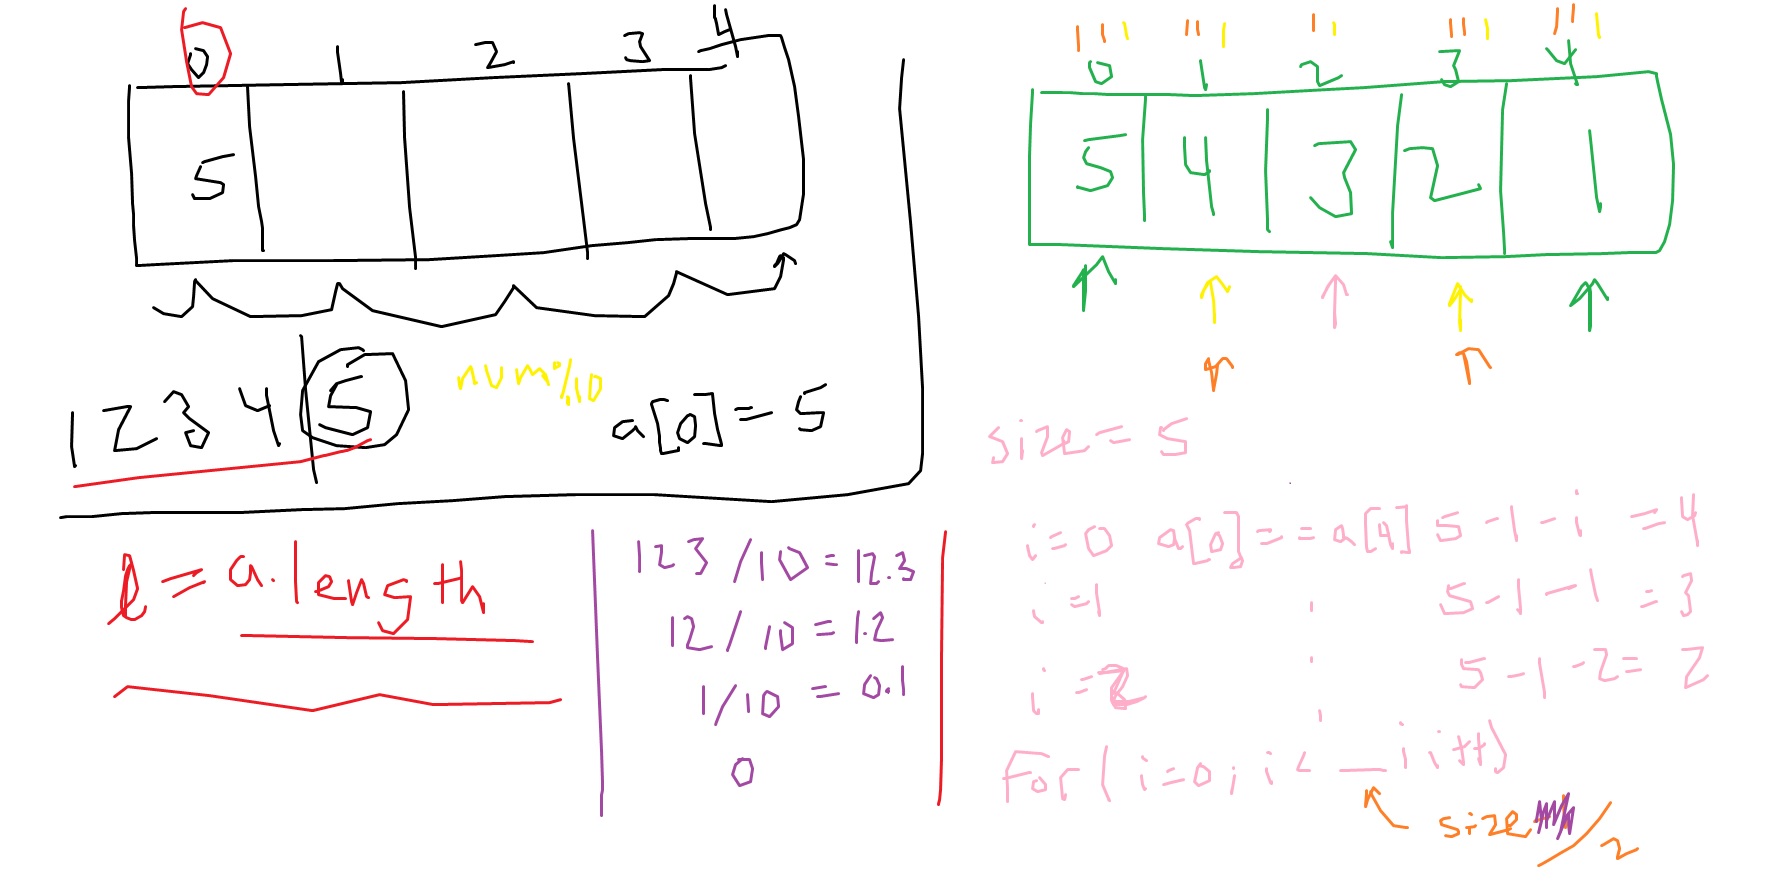 0 1 2 3 4
5
1 2 3 4 5
num%10
a[0] = 5
l = a.length
123 /10 = 12.3
12 / 10 = 1.2
1/10 = 0.1
0
0 1 2 3 4
5 4 3 2 1
size = 5
i=0 a[0]== a[4] 5 -1 - i = 4
i =1 5 -1 - 1 = 3
i =2 5 -1 -2= 2
for( i=0; i < __ ; i++)
size /2